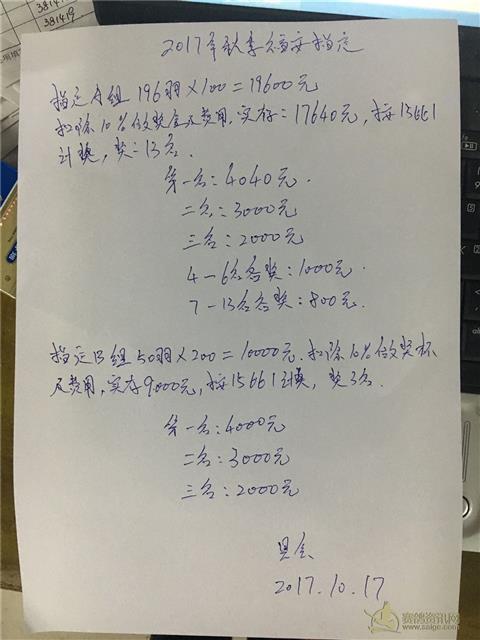 381419
381419
2017年秋季信安指定
指定A组196羽×100=19600元
扣除10%做奖金及费用,实存:17640元,按15661
计奖,奖:13名.
第一名:4040元.
二名:3000元
三名:2000元
4-6名各奖:1000元.
7-13名各奖:800元.
指定B组50羽×200=10000元.扣除10%做奖杯
及费用,实存9000元,按15661计奖,奖3名.
第一名:4000元
二名:3000元
三名:2000元
2017.10.17
赛鸽资讯网
www.saige.com